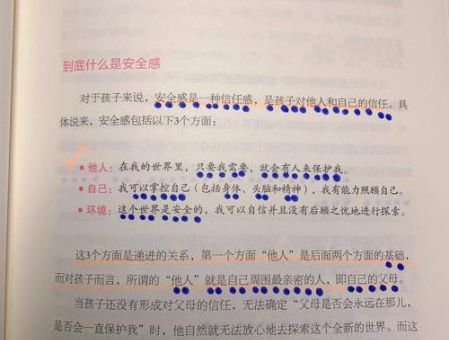 到底什么是安全感
对于孩子来说，安全感是一种信任感，是孩子对他人和自己的信任。具
体说来，安全感包括以下3个方面：
• 他人：在我的世界里，只要我需要，就会有人来保护我。
• 自己：我可以掌控自己（包括身体、头脑和精神），我有能力照顾自己。
• 环境：这个世界是安全的，我可以自信并且没有后顾之忧地进行探索。
这3个方面是递进的关系，第一个方面“他人”是后面两个方面的基础，
而对孩子而言，所谓的“他人”就是自己周围最亲密的人，即自己的父母。
当孩子还没有形成对父母的信任，无法确定“父母是否会永远在那儿，
是否会一直保护我”时，他自然就无法放心地去探索这个全新的世界。而这